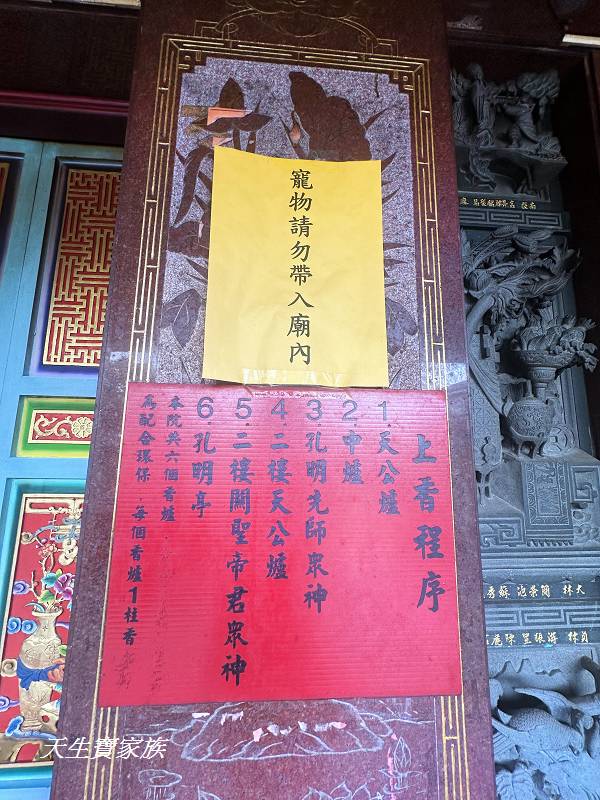 寵物請勿帶入廟內
上香程序
1.天公爐
2.中爐
3.孔明先師眾神
4.二樓天公爐
5.二樓關聖帝君眾神
6.孔明亭
本院共六個香爐
為配合環保.每個香爐1柱香
天生寶家族